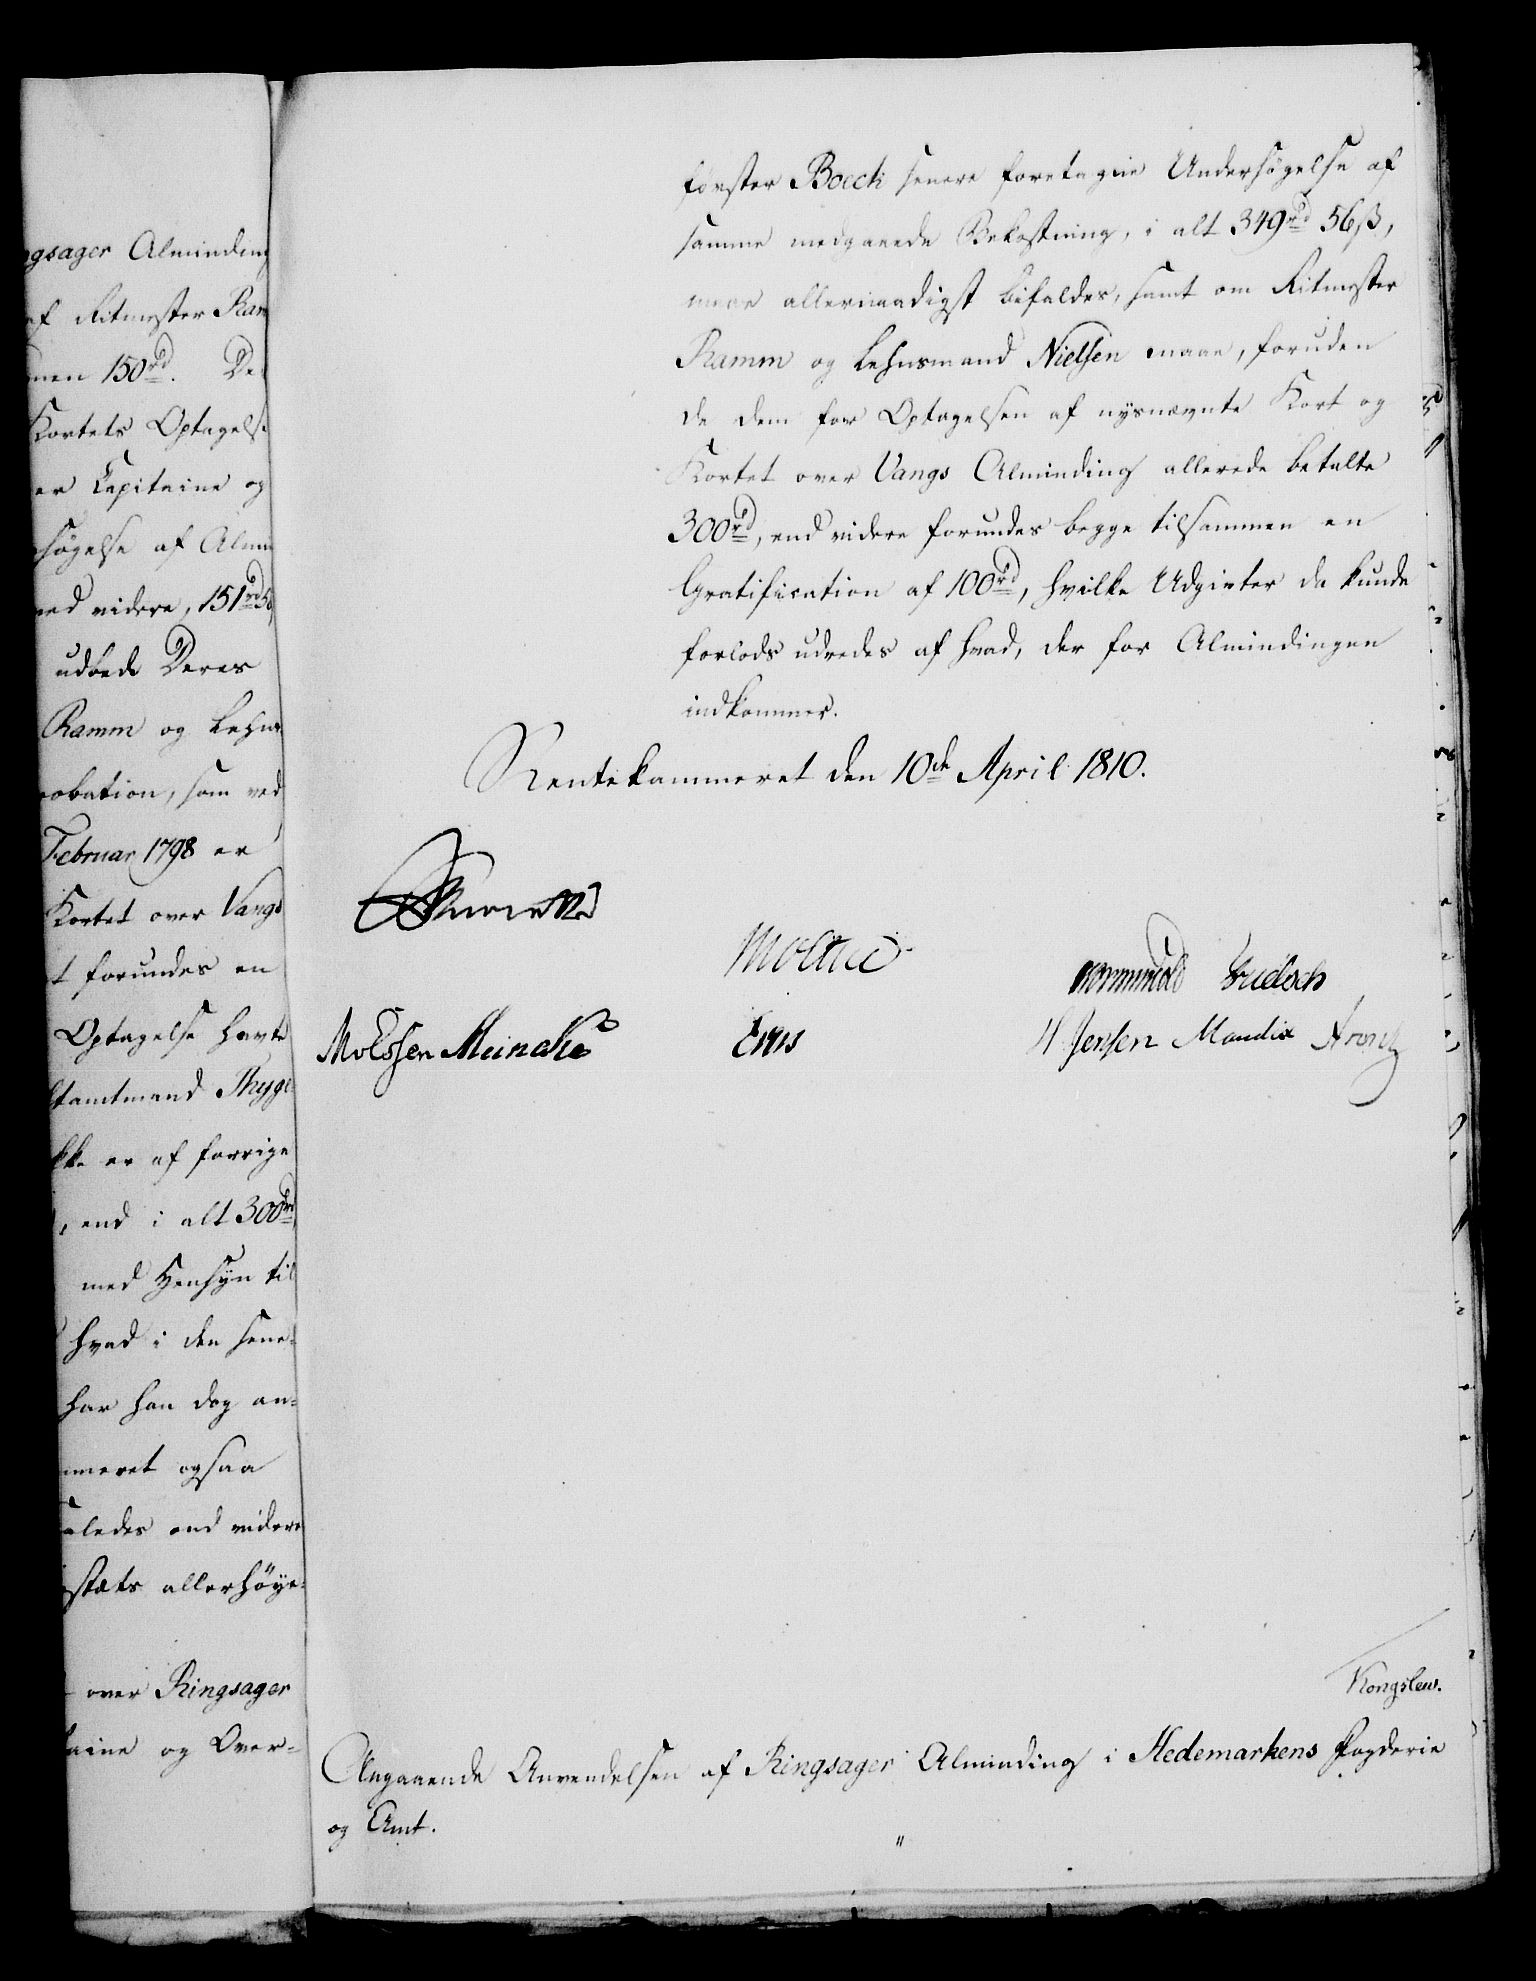 gsager Alminding
af Ritmester Ram
men 150rd. De
Kortets Optagelse
er Capitaine og
søgelse af Almin
ved videre, 151rd 56
udbede Deres
Ramm og Lehns
robation, som ved
Februar 1798 er
Kortet over Vangs
t forundes en
Optagelse havte
tamtmand Thyge
kke er af forrige
, end i alt 300rd
med Hensyn til
hvad i den sene-
har han dog an-
meret ogsaa
aledes end videre
stæts allerhøye-
over Ringsager
taine og Over-
førster Boeck senere foretagne Undersøgelse af
samme medgaaede Bekostning, i alt 349rd 56ß,
maae allernaadigst bifaldes, samt om Ritmester
Ramm og Lehnsmand Nielsen maae, foruden
de dem for Optagelsen af nysnævnte Kort og
Kortet over Vangs Alminding allerede betalte
300rd, end videre forundes begge tilsammen en
Gratification af 100rd, hvilke Udgivter da kunde
forlods udredes af hvad, der for Almindingen
indkommer.
Rentekammeret den 10de April 1810.
Moltke
Wormskiold
Molssen Meincke
H Jensen Mandix
Kongslew.
Angaaende Anvendelsen af Ringsager Alminding i Hedemarkens Fogderie
og Amt.